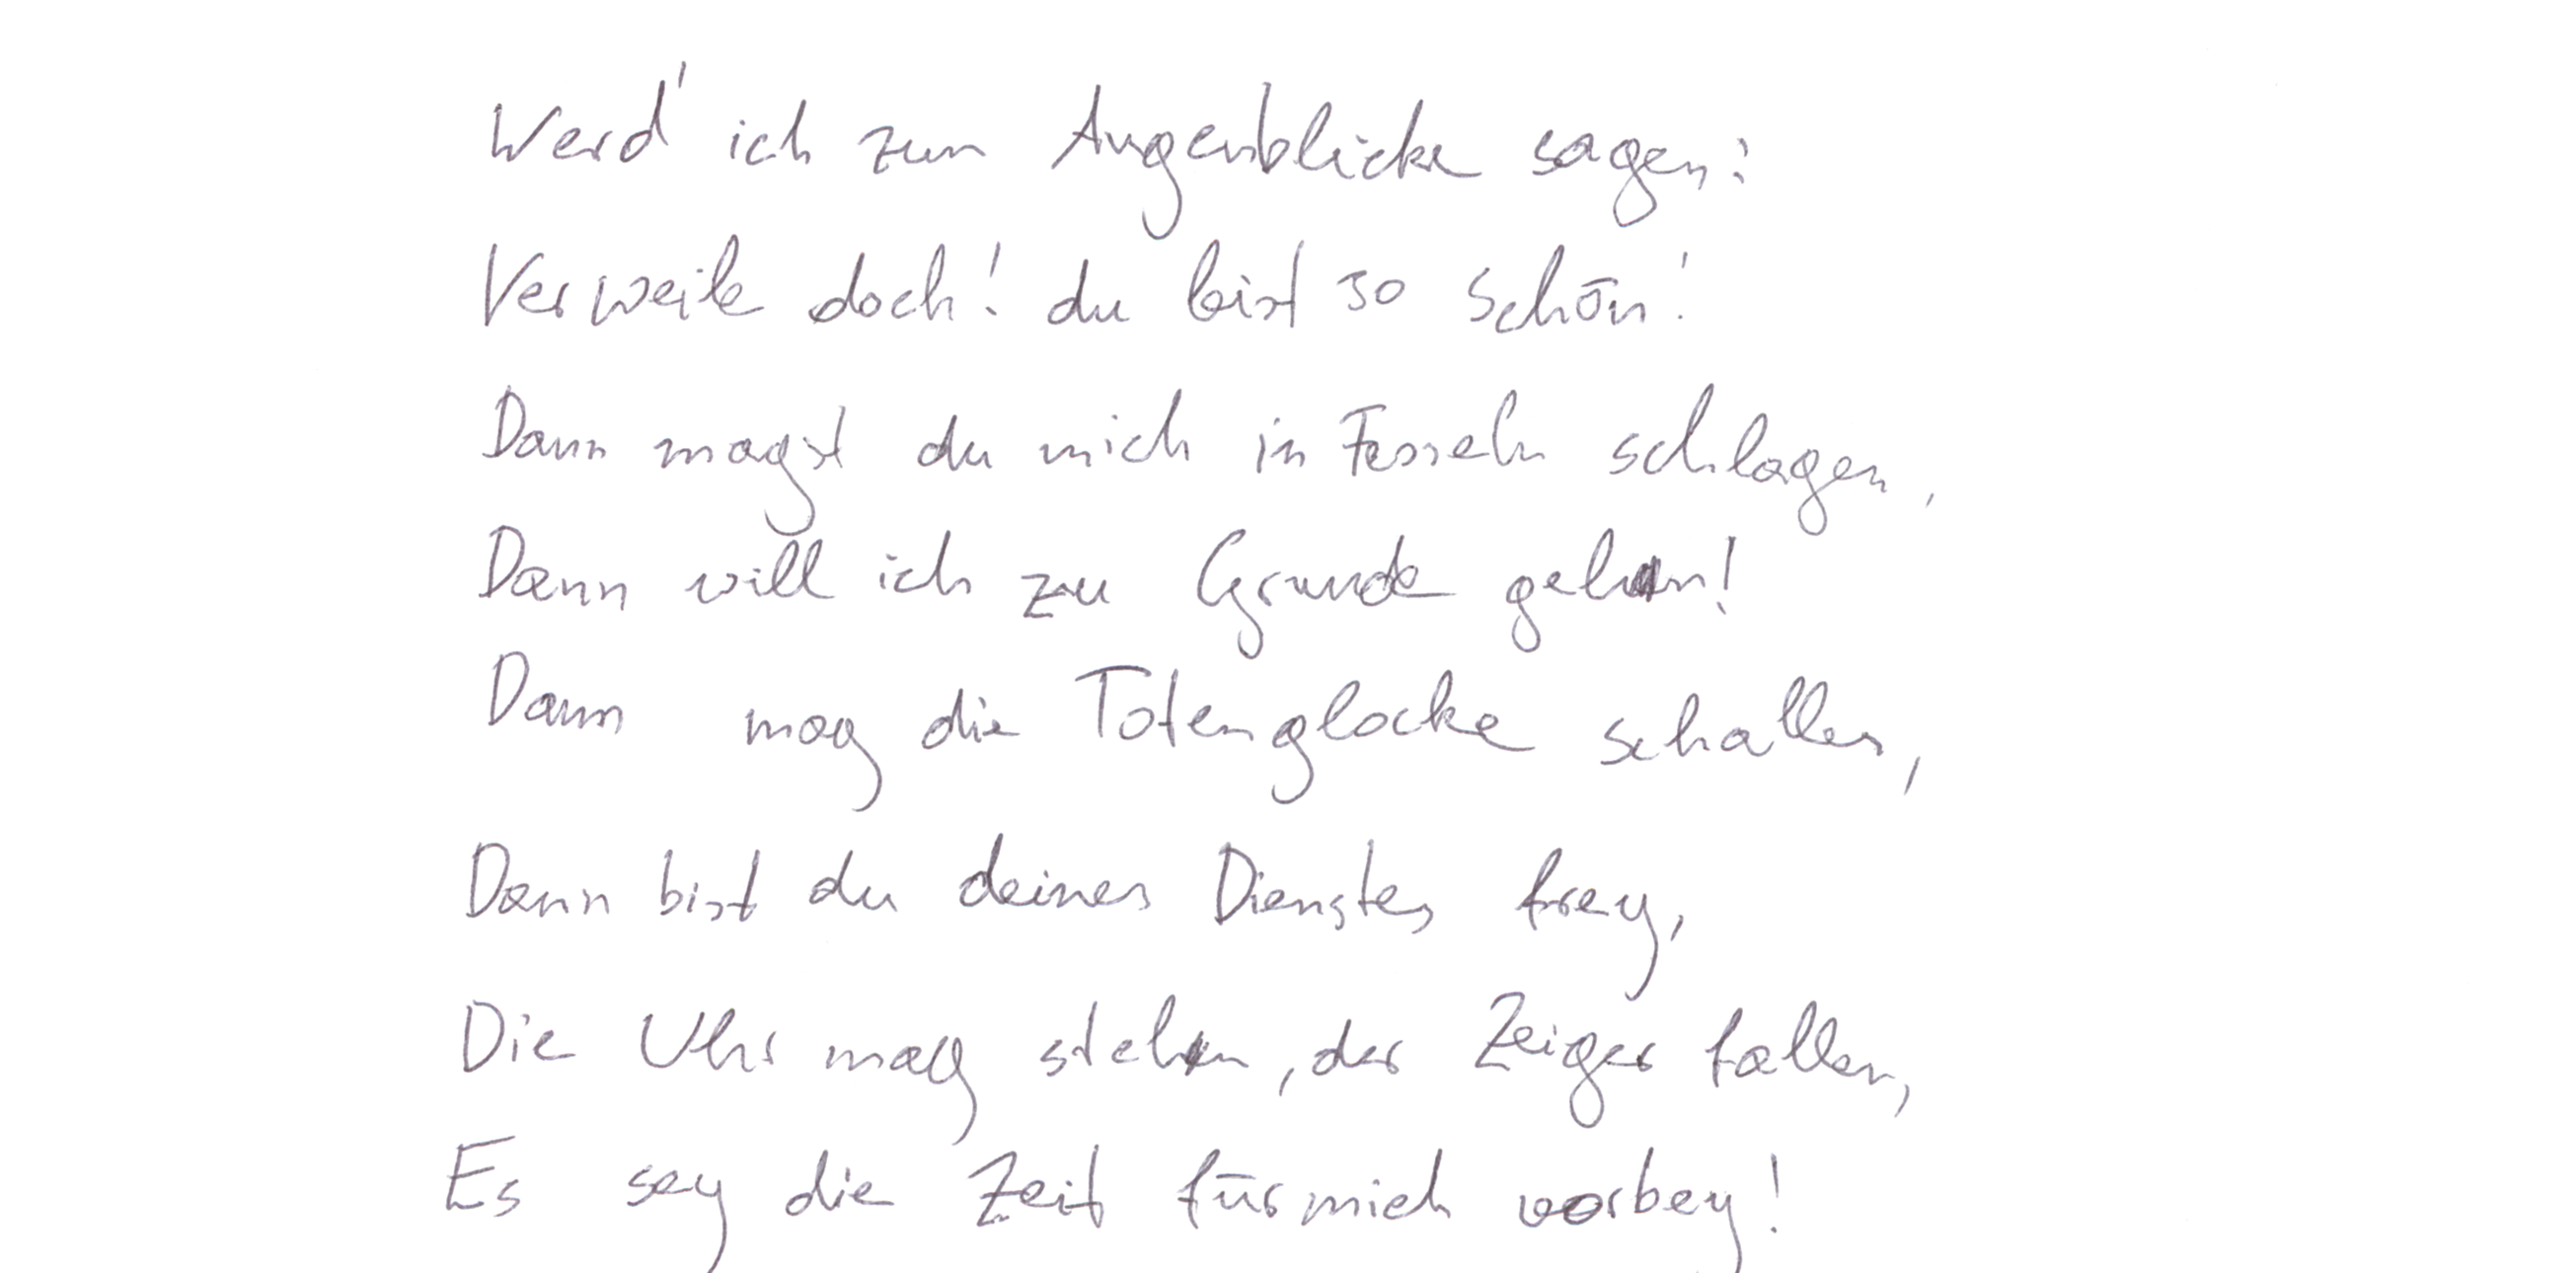 Werd' ich zum Augenblicke sagen:
Verweile doch! du bist so schön!
Dann magst du mich in Fesseln schlagen,
Dann will ich zu Grunde gehn!
Dann mag die Totenglocke schallen,
Dann bist du deines Dienstes frey,
Die Uhr mag stehn, der Zeiger fallen,
Es sey die Zeit für mich vorbey!